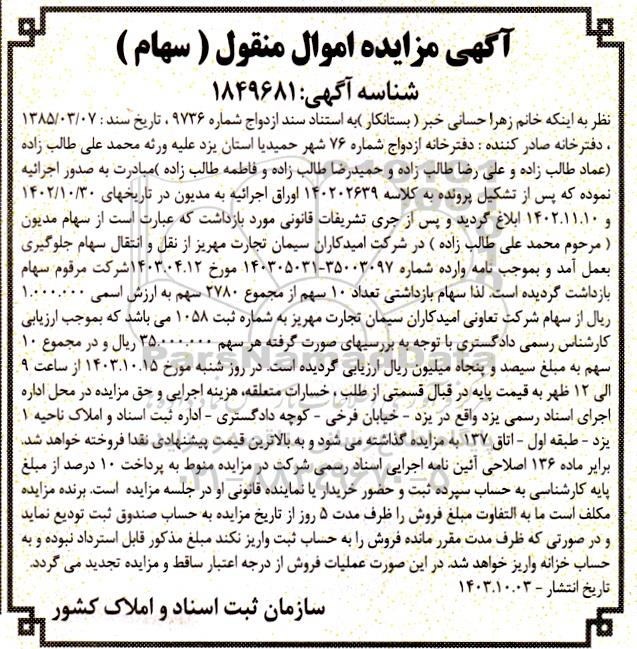 آگهی مزایده اموال منقول ( سهام )
شناسه آگهی: ۱۸۴۹۶۸۱
نظر به اینکه خانم زهرا حسانی خبر ( بستانکار )به استناد سند ازدواج شماره ۹۷۳۶ ، تاریخ سند : ۱۳۸۵/۰۳/۰۷
، دفترخانه صادر کننده : دفترخانه ازدواج شماره ۷۶ شهر حمیدیا استان یزد علیه ورثه محمد علی طالب زاده
(عماد طالب زاده و علی رضا طالب زاده و حمیدرضا طالب زاده و فاطمه طالب زاده )مبادرت به صدور اجرائیه
نموده که پس از تشکیل پرونده به کلاسه ۱۴۰۲۰۲۶۳۹ اوراق اجرائیه به مدیون در تاریخهای ۱۴۰۲/۱۰/۳۰
و ۱۴۰۲.۱۱.۱۰ ابلاغ گردید و پس از جری تشریفات قانونی مورد بازداشت که عبارت است از سهام مدیون
( مرحوم محمد علی طالب زاده ) در شرکت امیدکاران سیمان تجارت مهریز از نقل و انتقال سهام جلوگیری
بعمل آمد و بموجب نامه وارده شماره ۳۵۰۰۳۰۹۷-۱۴۰۳۰۵۰۳۱ مورخ ۱۴۰۳.۰۴.۱۲شرکت مرقوم سهام
بازداشت گردیده است. لذا سهام بازداشتی تعداد ۱۰ سهم از مجموع ۲۷۸۰ سهم به ارزش اسمی ۱.۰۰۰.۰۰۰
ریال از سهام شرکت تعاونی امیدکاران سیمان تجارت مهریز به شماره ثبت ۱۰۵۸ می باشد که بموجب ارزیابی
کارشناس رسمی دادگستری با توجه به بررسیهای صورت گرفته هر سهم ۳۵.۰۰۰.۰۰۰ ریال و در مجموع ۱۰
سهم به مبلغ سیصد و پنجاه میلیون ریال ارزیابی گردیده است. در روز شنبه مورخ ۱۴۰۳.۱۰.۱۵ از ساعت ۹
الی ۱۲ ظهر به قیمت پایه در قبال قسمتی از طلب ، خسارات متعلقه، هزینه اجرایی و حق مزایده در محل اداره
اجرای اسناد رسمی یزد واقع در یزد - خیابان فرخی - کوچه دادگستری - اداره ثبت اسناد و املاک ناحیه ۱
یزد - طبقه اول - اتاق ۱۳۷ به مزایده گذاشته می شود و به بالاترین قیمت پیشنهادی نقدا فروخته خواهد شد.
برابر ماده ۱۳۶ اصلاحی آئین نامه اجرایی اسناد رسمی شرکت در مزایده منوط به پرداخت ۱۰ درصد از مبلغ
پایه کارشناسی به حساب سپرده ثبت و حضور خریدار یا نماینده قانونی او در جلسه مزایده است. برنده مزایده
مکلف است ما به التفاوت مبلغ فروش را ظرف مدت ۵ روز از تاریخ مزایده به حساب صندوق ثبت تودیع نماید
و در صورتی که ظرف مدت مقرر مانده فروش را به حساب ثبت واریز نکند مبلغ مذکور قابل استرداد نبوده و به
حساب خزانه واریز خواهد شد. در این صورت عملیات فروش از درجه اعتبار ساقط و مزایده تجدید می گردد.
تاریخ انتشار - ۱۴۰۳.۱۰.۰۳
سازمان ثبت اسناد و املاک کشور
ParsNamadData
۰۲۱-۸۸۳۴۹۶۷۰-۵